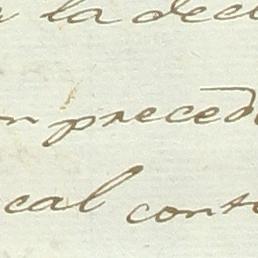 la decl
n preced
cal cont